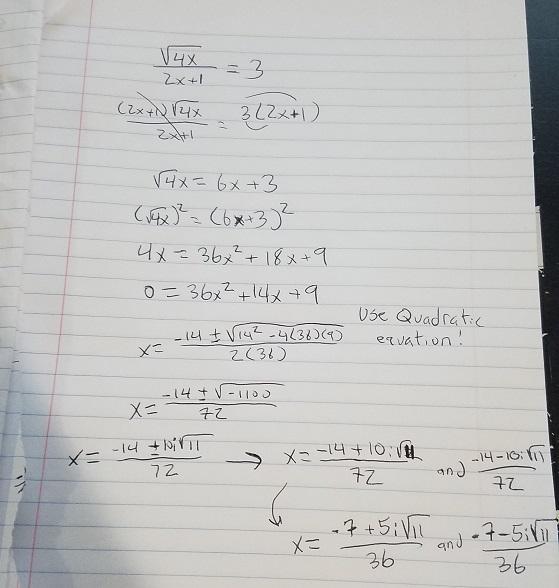 √4x / 2x+1 = 3
(2x+1)√4x / 2x+1 = 3(2x+1)
√4x = 6x+3
(√4x)² = (6x+3)²
4x = 36x² + 18x+9
0 = 36x² +14x +9
Use Quadratic
equation!
x= -14 ± √14² -4(36)(9) / 2(36)
x= -14 ± √-1100 / 72
x= -14 ±10i√11 / 72 → x= -14+10i√11 / 72 and -14-10i√11 / 72
x= -7+5i√11 / 36 and -7-5i√11 / 36